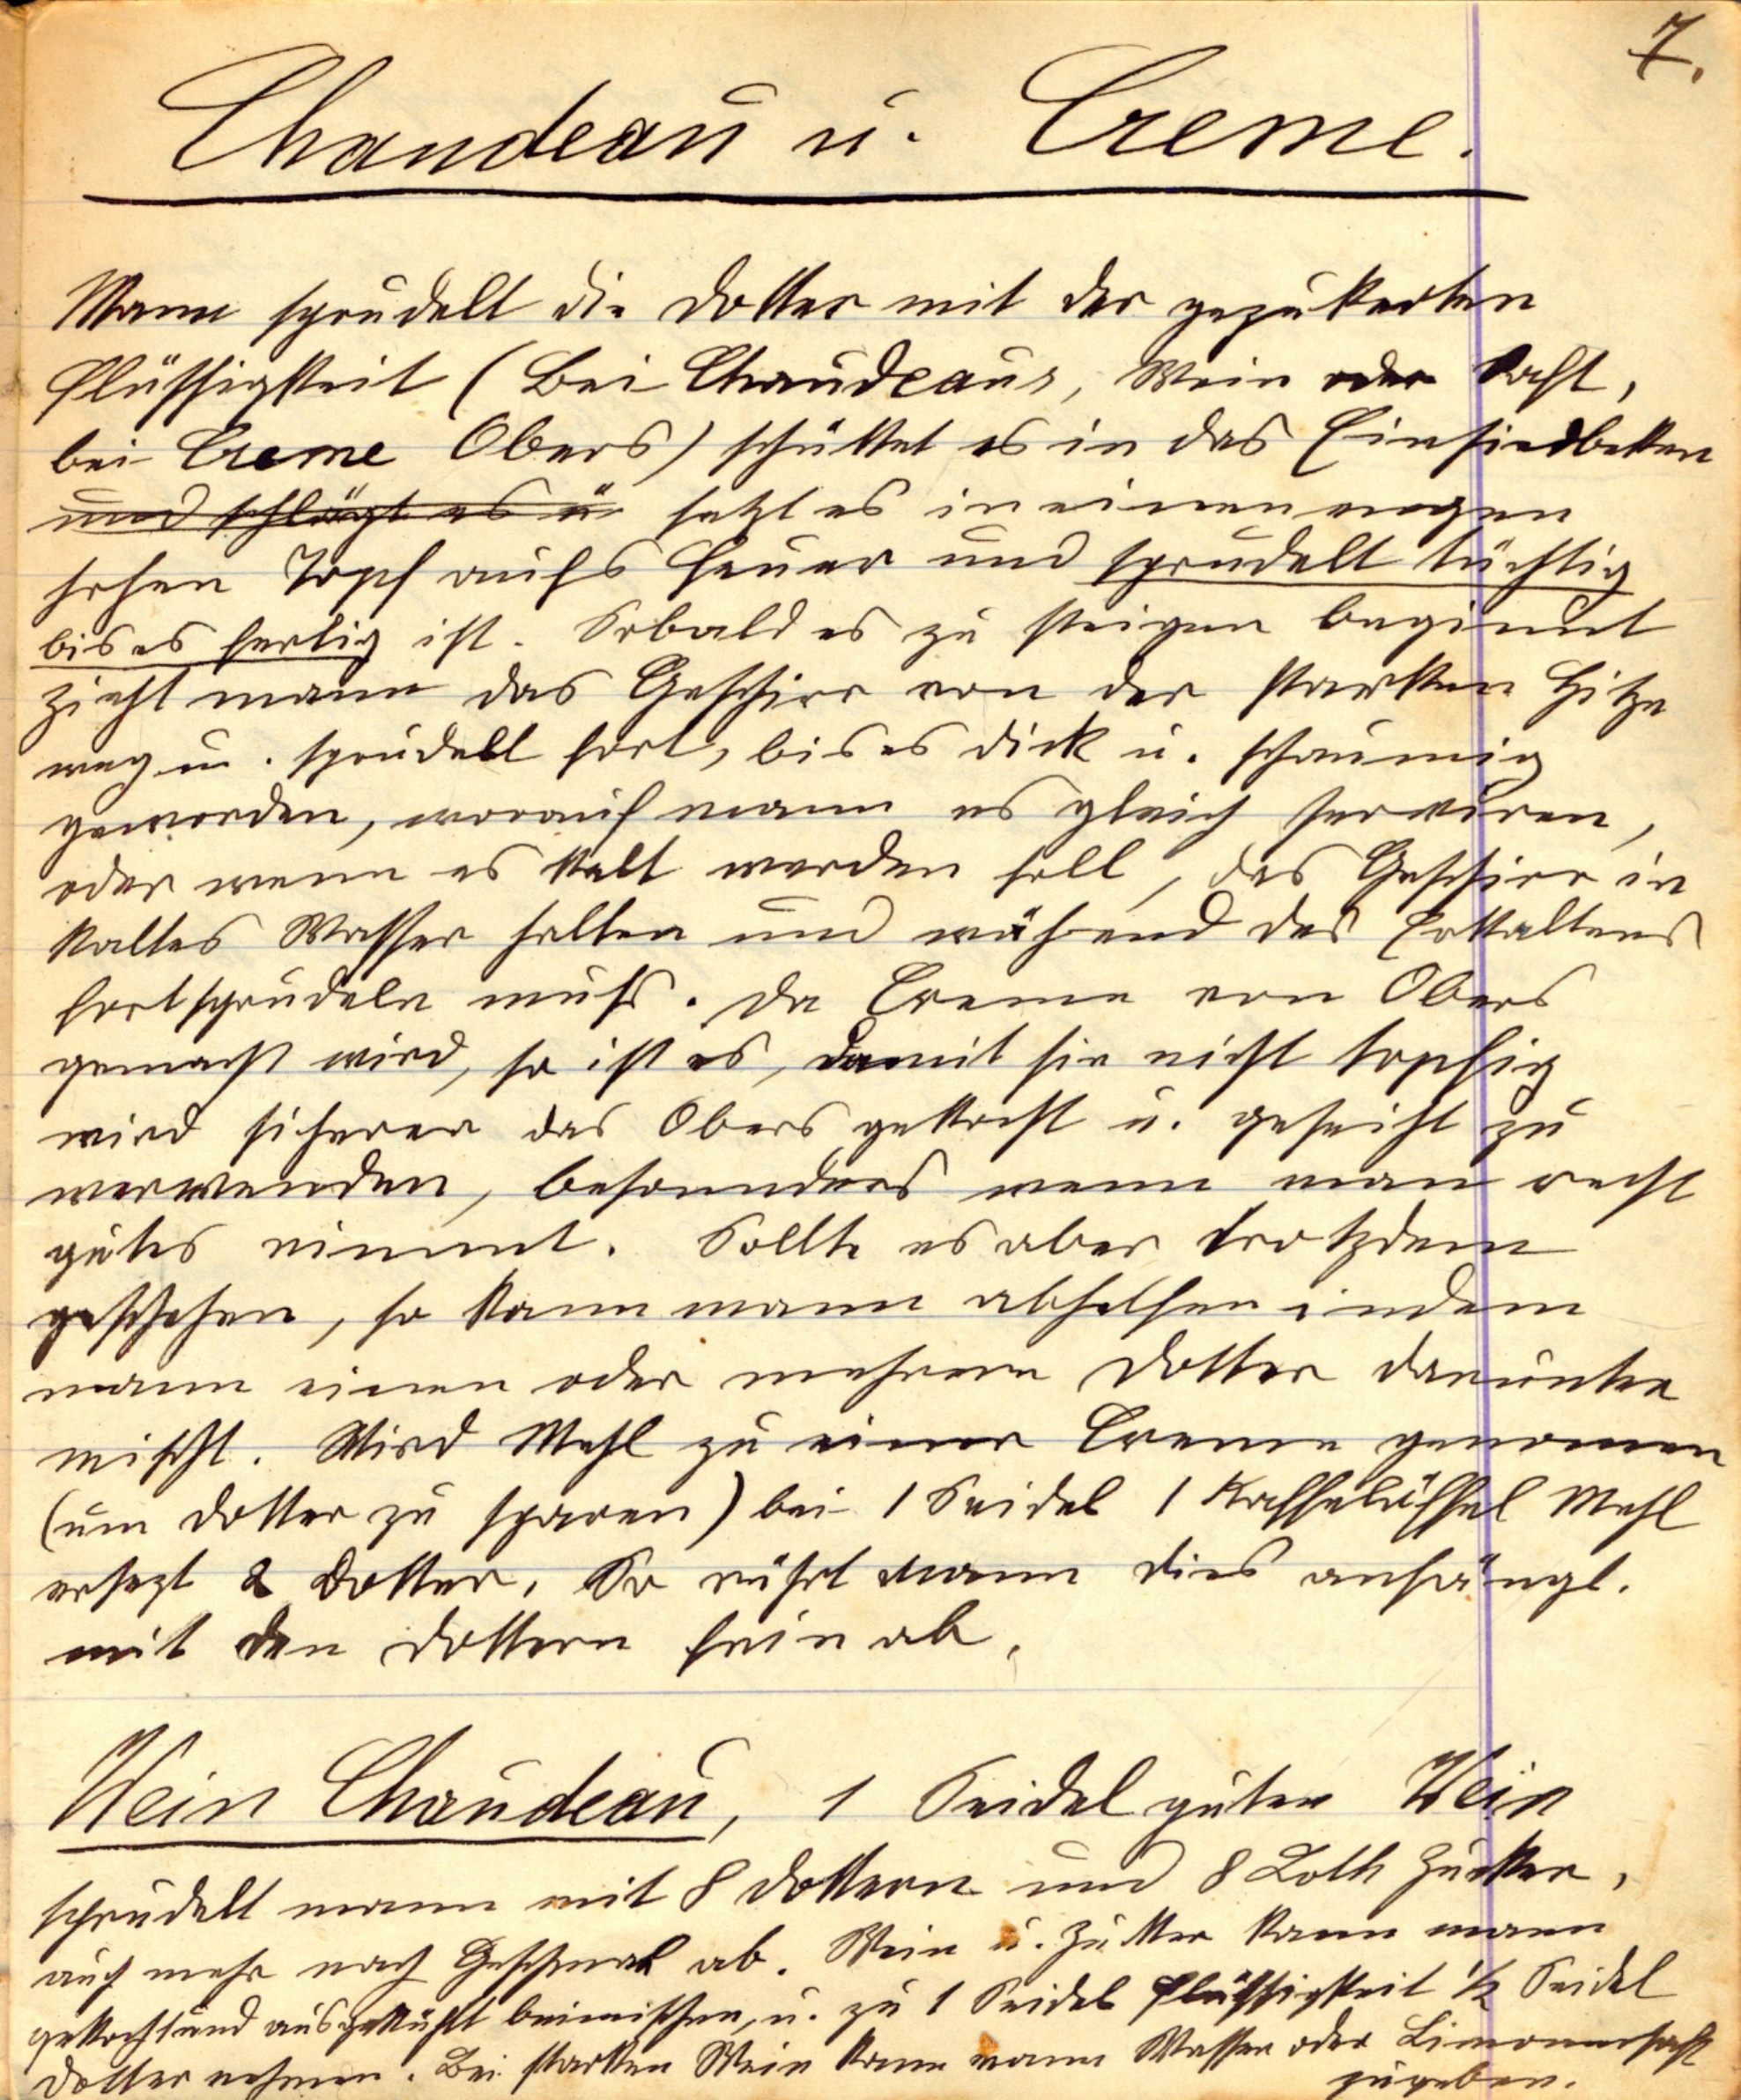 7.
Chaudeau u. Creme.
Mann sprudelt die Dotter mit der gezukerten
Flüssigkeit (Bei Chaudeaus, Wein oder Saft,
bei Creme Obers) schüttet es in das Einsiedbekken
und schlägt es u. setzt es in einen engen
hohen Topf aufs Feuer und sprudelt tüchtig
bis es fertig ist. Sobald es zu steigen beginnt
zieht mann das Geschirr von der starken Hitze
weg u. sprudelt fort, bis es dick u. schaumig
geworden, worauf mann es gleich serviren,
oder wenn es kalt werden soll, das Geschirr in
kaltes Wasser halten und während des Erkaltens
fortsprudeln muß. Da Creme von Obers
gemacht wird, so ist es, damit sie nicht topfig
wird sicherer das Obers gekocht u. geseiht zu
verwenden, besonnders wenn man recht
gutes nimmt. Sollte es aber trotzdem
geschehen, so kann mann abhelfen indem
mann einen oder mehrere Dotter darunter
mischt. Wird Mehl zu einer Creme genomen
(um Dotter zu sparen) bei 1 Seidel 1 Kaffelöffel Mehl
ersezt 2 Dotter. So rührt mann dies anfängl.
mit den Dottern fein ab.
Wein Chaudeau, 1 Seidel guten Wein
sprudelt mann mit 8 Dottern und 8 Loth Zucker,
auch mehr nach Geschmak ab. Wein u. Zukker kann mann
gekocht und ausgekühlt beimischen, u. zu 1 Seidel Flüssigkeit ½ Seidel
Dotter nehmen. Bei starken Wein kann mann Wasser oder Limonensaft
zugeben.